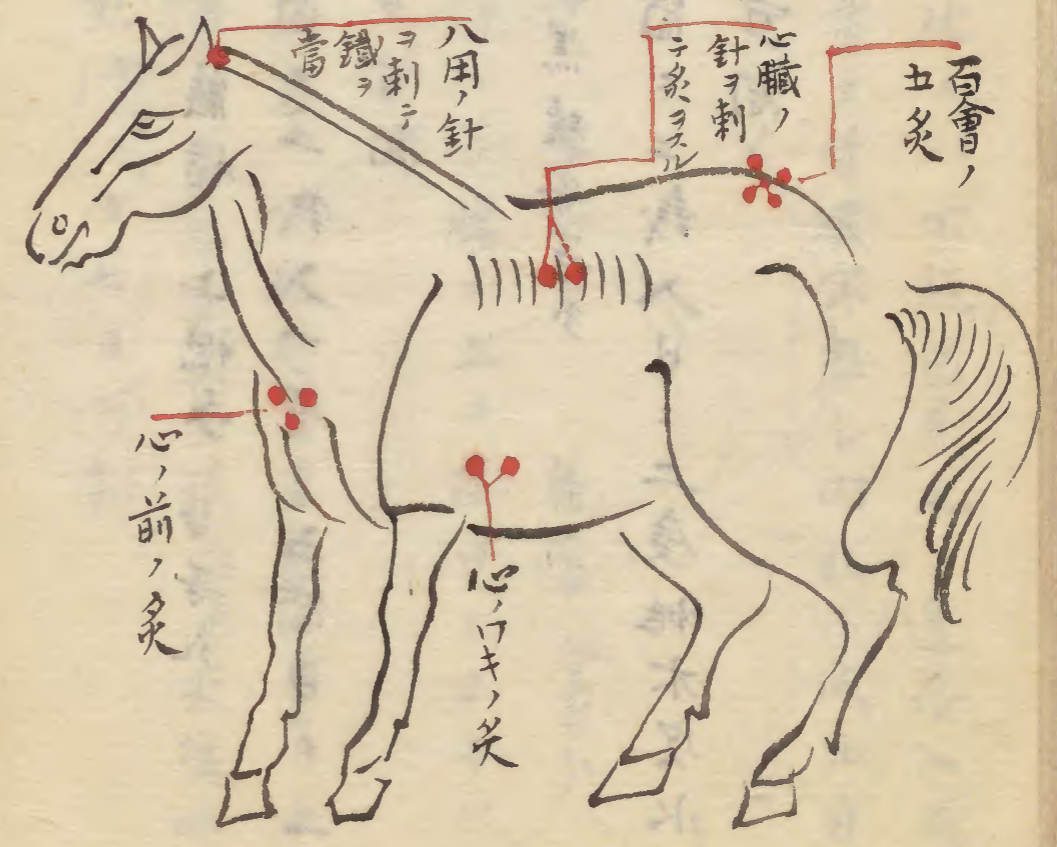 百會ノ
五灸
心臓ノ
針ヲ刺
テ灸ヲスル
八用ノ針
ヲ刺テ
鐵ヲ
當
心ノワキノ灸
心ノ前ノ灸